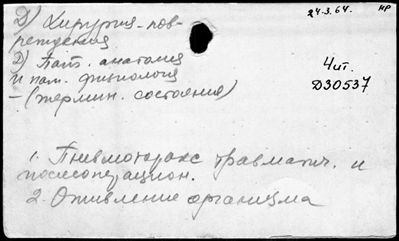 Д) Хирургия - пов-
реждения
24.3.64. НР
2) Пат. анатомия
и пат. физиология
- (термин. состояния)
Чит.
Д30537
1. Пневмоторакс травматич. и
послеоперацион.
2. Оживление организма